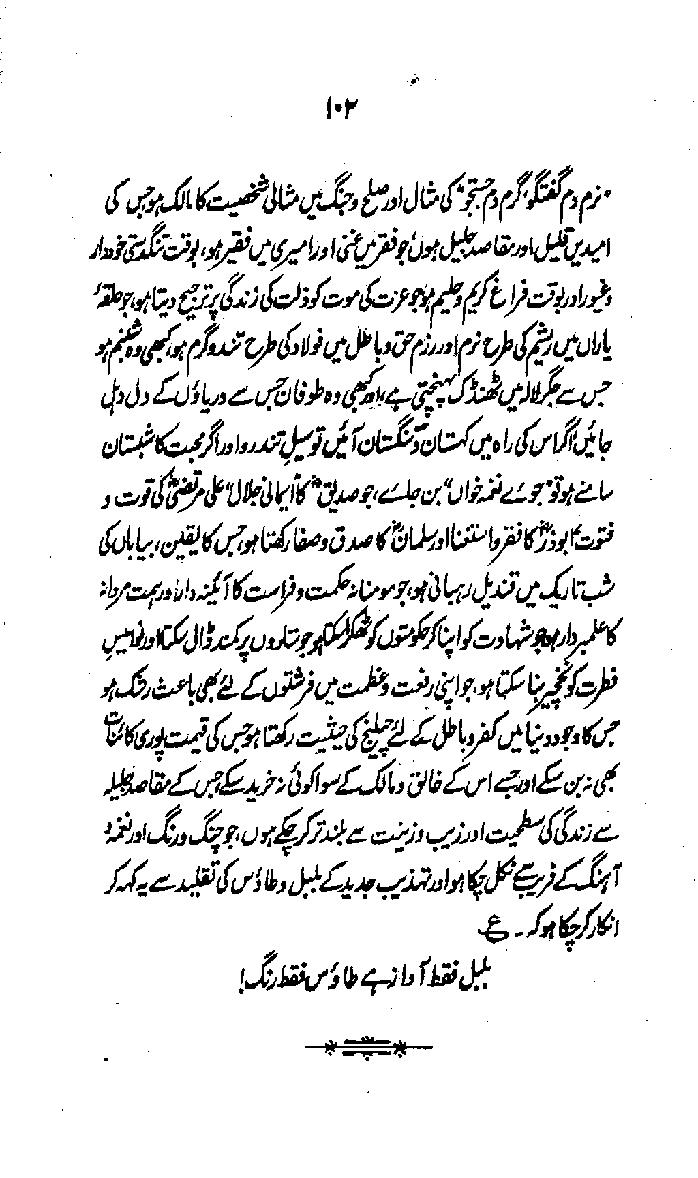 ۱۰۲
"نرم دم گفتگو، گرم دم جستجو" کی مثال اور صلح و جنگ میں مثالی شخصیت کا مالک ہو جس کی
امیدیں قلیل اور مقاصد جلیل ہوں، جو فقر میں غنی اور امیری میں فقیر ہو، بوقت تنگدستی خوددار
و غیور اور بوقت فراغ کریم و حلیم ہو جو عزت کی موت کو ذلت کی زندگی پر ترجیح دیتا ہو، جو حلقۂ
یاراں میں ریشم کی طرح نرم اور رزم حق و باطل میں فولاد کی طرح تند و گرم ہو، کبھی وہ شبنم ہو
جس سے جگر لالہ میں ٹھنڈک پہنچتی ہے، اور کبھی وہ طوفان جس سے دریاؤں کے دل دہل
جائیں اگر اس کی راہ میں کہستان و سنگستان آئیں تو سیلِ تندرو اور اگر محبت کا شبستان
سامنے ہو تو "جوئے نغمہ خواں" بن جائے، جو صدیقؓ کا ایمانی جلال، علی مرتضیٰؓ کی قوت و
فتوت، ابوذرؓ کا فقر و استغنا اور سلمانؓ کا صدق و صفا رکھتا ہو، جس کا یقین، بیاباں کی
شب تاریک میں قندیل رہبانی ہو، جو مومنانہ حکمت و فراست کا آئینہ دار اور ہمت مردانہ
کا علمبردار ہو جو شہادت کو اپنا کر حکومتوں کو ٹھکرا سکتا ہو جو ستاروں پر کمند ڈال سکتا اور نوامیسِ
فطرت کو نخچیر بنا سکتا ہو، جو اپنی رفعت و عظمت میں فرشتوں کے لئے بھی باعث رشک ہو
جس کا وجود دنیا میں کفر و باطل کے لئے چیلنج کی حیثیت رکھتا ہو جس کی قیمت پوری کائنات
بھی نہ بن سکے اور جسے اس کے خالق و مالک کے سوا کوئی نہ خرید سکے جس کے مقاصد جلیلہ
سے زندگی کی سطحیت اور زیب و زینت سے بلند تر کر چکے ہوں، جو چنگ و رنگ اور نغمہ و
آہنگ کے فریب سے نکل چکا ہو اور تہذیب جدید کے بلبل و طاؤس کی تقلید سے یہ کہہ کر
انکار کر چکا ہو کہ ۔ ع
بلبل فقط آواز ہے طاؤس فقط رنگ!